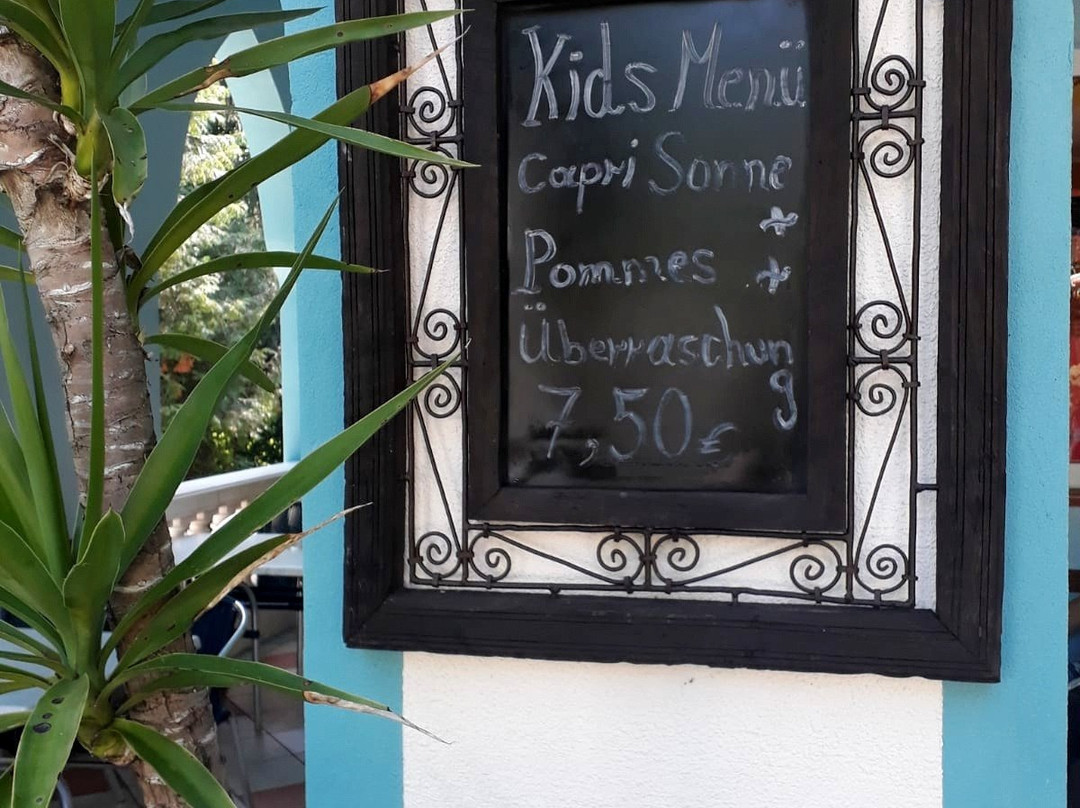 Kids Menü
Capri Sonne
+
Pommes +
Überraschung
7,50€